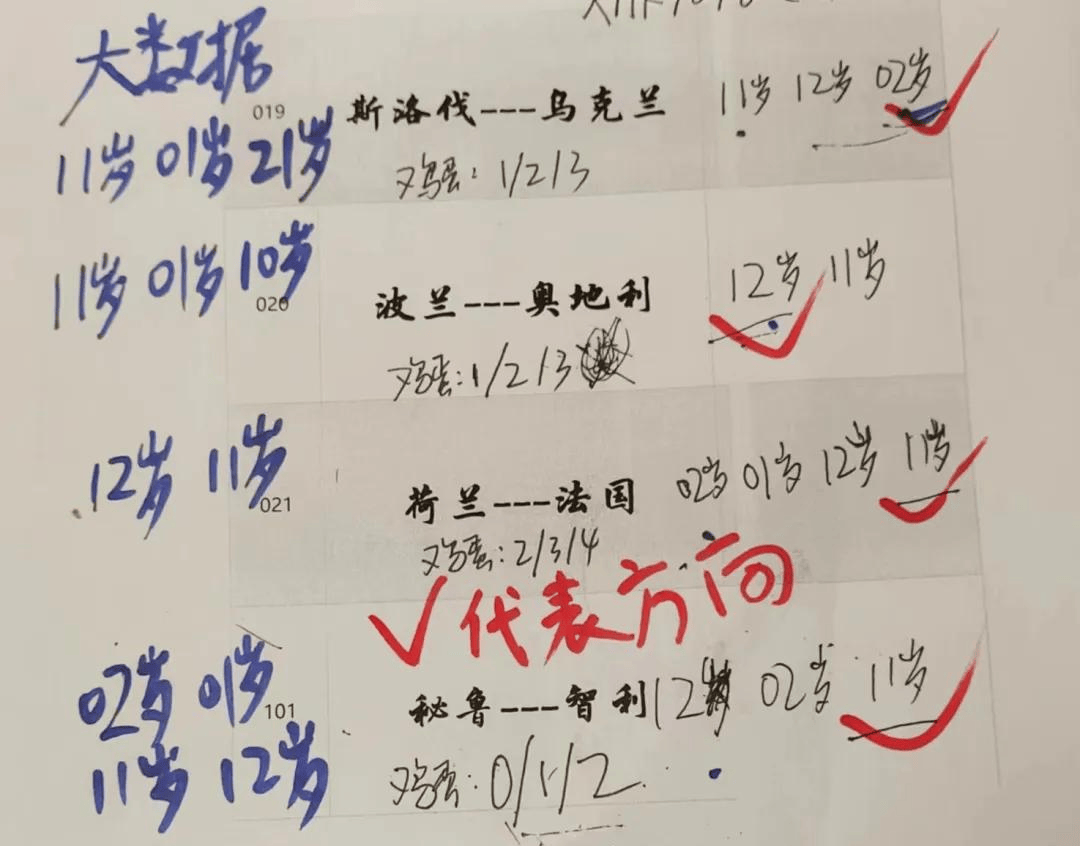 大数据
019 斯洛伐---乌克兰 11岁 12岁 02岁
11岁 01岁 21岁
鸡蛋: 1/2/3
11岁 01岁 10岁
020 波兰---奥地利 12岁 11岁
鸡蛋: 1/2/3
12岁 11岁
021 荷兰---法国 02岁 01岁 12岁 11岁
鸡蛋: 2/3/4
✓代表方向
02岁 01岁
101 秘鲁---智利 12岁 02岁 11岁
11岁 12岁
鸡蛋: 0/1/2